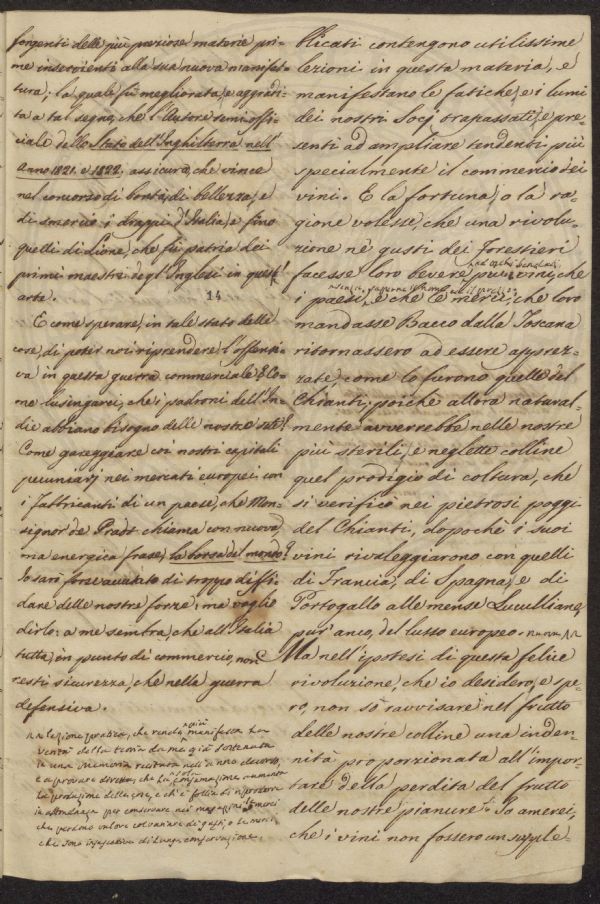 sorgenti delle più preziose materie pri-
me inservienti alla sua nuova manifat-
tura; la quale fù megliorata, e aggradi-
ta a tal segno, che l'Autore semioffi-
ciale dello Stato dell'Inghilterra nell'
anno 1821. e 1822. assicura, che vince
nel concorso di bontà, di bellezza, e
di smercio i drappi d'Italia, e fino
quelli di Lione, che fù patria dei
primi maestri degl'Inglesi in quest'
arte.
14
E come sperare, in tale stato delle
cose, di poter noi riprendere l'offensi-
va in questa guerra commerciale? E Co-
me lusingarci, che i padroni dell'In-
die abbiano bisogno delle nostre sete?
Come gareggiare coi nostri capitali
pecuniarj nei mercati europei con
i fabbricanti di un paese, che Mon-
signor de Pradt chiama con nuova,
ma energica frase, la borsa del mondo?
Io sarò forse accusato di troppo diffi-
dare delle nostre forze; ma voglio
dirlo: a me sembra, che all'Italia
tutta, in punto di commercio, non
resti sicurezza, che nella guerra
defensiva.
lezione pratica, che rende più manifesta la
verità della teoria da me già sostenuta
in una memoria recitata nell'anno decorso,
e a provare diretta, che la sola consumazione aumenta
la produzione delle cose, e ch'è follia il riprodurre
in abbondanza per conservare nei magazzini le merci
che perdono valore col variare di gusti, o le merci
che sono insuscettive di lunga conservazione.
blicati contengono utilissime
lezioni in questa materia, e
manifestano le fatiche, e i lumi
dei nostri Socj trapassati, e pre-
senti ad ampliare tendenti più
specialmente il commercio dei
vini. E la fortuna, o la ra-
gione volesse, che una rivolu-
zione ne' gusti dei forestieri
facesse loro bevere più vini, che
i paesi, e che le merci, che loro
mandasse Bacco dalla Toscana
ritornassero ad essere apprez-
zate, come lo furono quelle del
Chianti; poichè allora natural-
mente avverrebbe nelle nostre
più sterili, e neglette colline
quel prodigio di coltura, che
si verificò nei pietrosi poggi
del Chianti, dopochè i suoi
vini rivaleggiarono con quelli
di Francia, di Spagna, e di
Portogallo alle mense Luculliane,
pur'anco, del lusso europeo.
Ma nell'ipotesi di questa felice
rivoluzione, che io desidero, e spe-
ro, non sò ravvisare nel frutto
delle nostre colline una inden-
nità proporzionata all'impor-
tare della perdita del frutto
delle nostre pianure. Io amerei,
che i vini non fossero un supple-